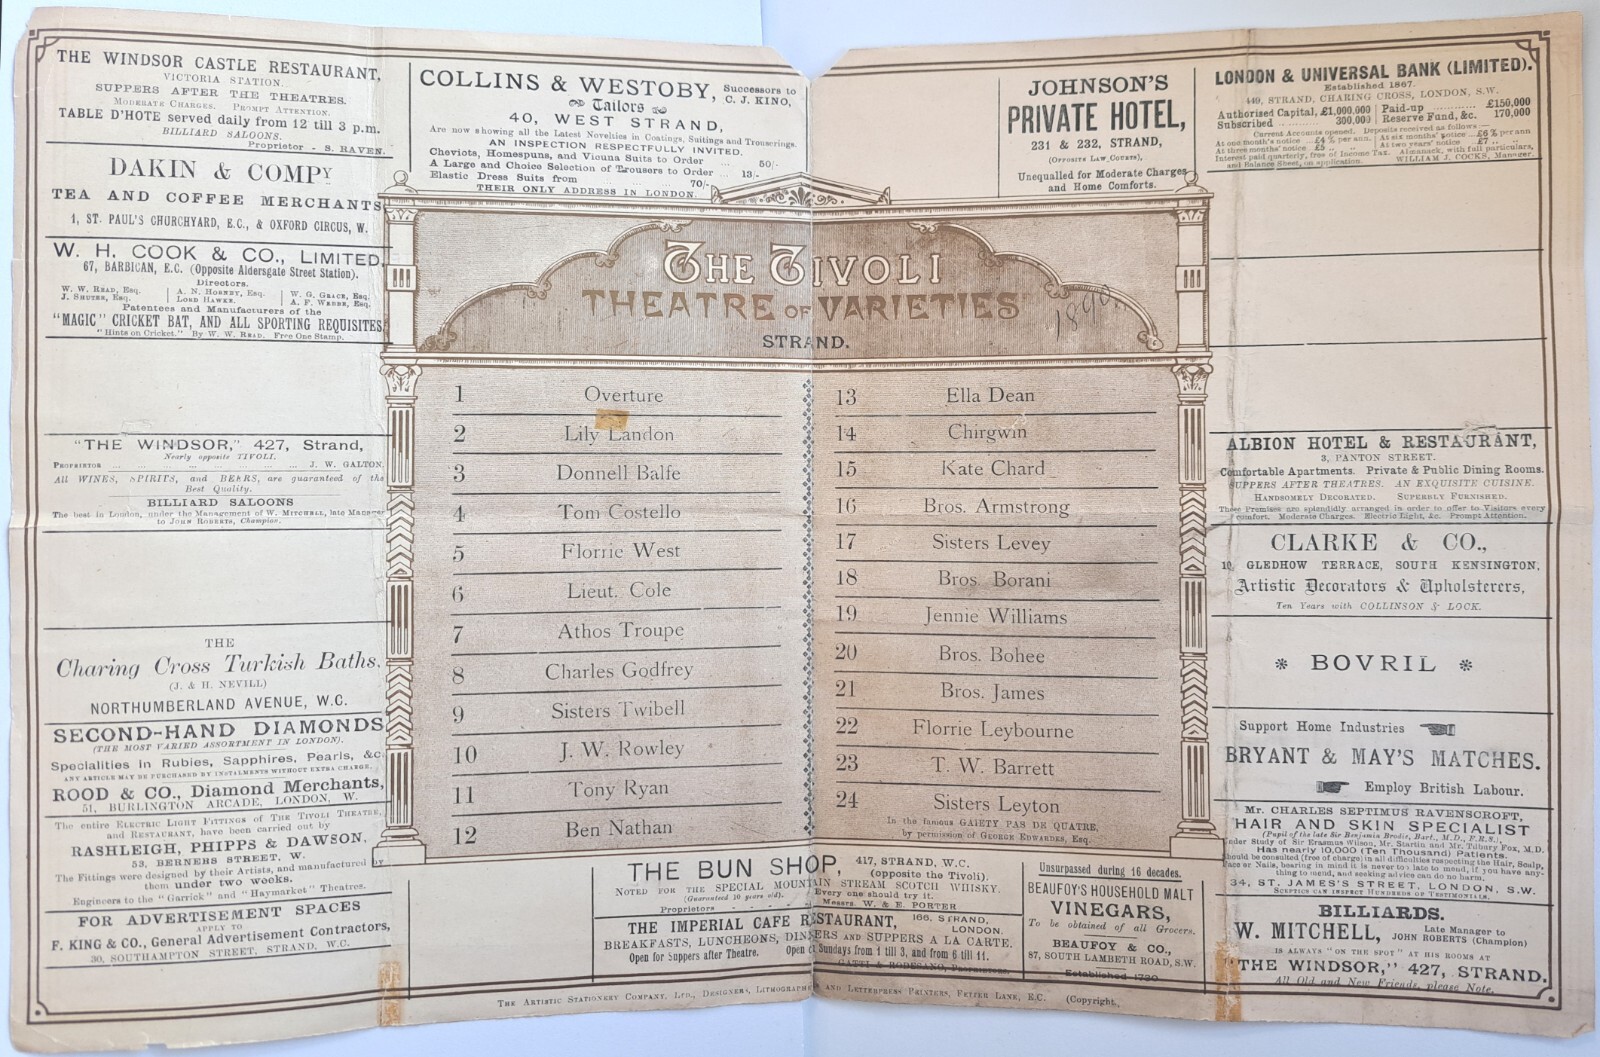 THE WINDSOR CASTLE RESTAURANT,
VICTORIA STATION.
SUPPERS AFTER THE THEATRES.
MODERATE CHARGES. PROMPT ATTENTION.
TABLE D'HOTE served daily from 12 till 3 p.m.
BILLIARD SALOONS.
Proprietor - S. RAVEN.
DAKIN & COMPY
TEA AND COFFEE MERCHANTS
1, ST. PAUL'S CHURCHYARD, E.C., & OXFORD CIRCUS, W.
W. H. COOK & CO., LIMITED,
67, BARBICAN, E.C. (Opposite Aldersgate Street Station).
Directors.
W. W. READ, Esq. A. N. HORNBY, Esq. W. G. GRACE, Esq.
J. SHUTER, Esq. LORD HAWKE. A. F. WEBBE, Esq.
Patentees and Manufacturers of the
"MAGIC" CRICKET BAT, AND ALL SPORTING REQUISITES
"Hints on Cricket." By W. W. READ. Free One Stamp.
"THE WINDSOR," 427, Strand,
Nearly opposite TIVOLI.
PROPRIETOR ... J. W. GALTON.
All WINES, SPIRITS, and BEERS, are guaranteed of the
Best Quality.
BILLIARD SALOONS
The best in London, under the Management of W. MITCHELL, late Manager
to JOHN ROBERTS, Champion.
THE
Charing Cross Turkish Baths,
(J. & H. NEVILL)
NORTHUMBERLAND AVENUE, W.C.
SECOND-HAND DIAMONDS
(THE MOST VARIED ASSORTMENT IN LONDON).
Specialities in Rubies, Sapphires, Pearls, &c.
ANY ARTICLE MAY BE PURCHASED BY INSTALMENTS WITHOUT EXTRA CHARGE.
ROOD & CO., Diamond Merchants,
51, BURLINGTON ARCADE, LONDON, W.
The entire ELECTRIC LIGHT FITTINGS of THE TIVOLI THEATRE,
and RESTAURANT, have been carried out by
RASHLEIGH, PHIPPS & DAWSON,
53, BERNERS STREET, W.
The Fittings were designed by their Artists, and manufactured by
them under two weeks.
Engineers to the "Garrick" and "Haymarket" Theatres.
FOR ADVERTISEMENT SPACES
APPLY TO
F. KING & CO., General Advertisement Contractors,
30, SOUTHAMPTON STREET, STRAND, W.C.
COLLINS & WESTOBY, Successors to
C. J. KINO,
Tailors
40, WEST STRAND,
Are now showing all the Latest Novelties in Coatings, Suitings and Trouserings.
AN INSPECTION RESPECTFULLY INVITED.
Cheviots, Homespuns, and Vicuna Suits to Order ... 50/-
A Large and Choice Selection of Trousers to Order ... 13/-
Elastic Dress Suits from ... 70/-
THEIR ONLY ADDRESS IN LONDON.
JOHNSON'S
PRIVATE HOTEL,
231 & 232, STRAND,
(OPPOSITE LAW COURTS),
Unequalled for Moderate Charges
and Home Comforts.
LONDON & UNIVERSAL BANK (LIMITED).
Established 1867.
449, STRAND, CHARING CROSS, LONDON, S.W.
Authorised Capital, £1,000,000 Paid-up ... £150,000
Subscribed ... 300,000 Reserve Fund, &c. 170,000
Current Accounts opened. Deposits received as follows:—
At one month's notice ... £4 % per ann. At six months' notice ... £6 % per ann
At three months' notice ... £5 " " At two years' notice ... £7 " "
Interest paid quarterly, free of Income Tax. Almanack, with full particulars,
and Balance Sheet, on application. WILLIAM J. COCKS, Manager.
THE TIVOLI
THEATRE OF VARIETIES
STRAND.
1 Overture
2 Lily Landon
3 Donnell Balfe
4 Tom Costello
5 Florrie West
6 Lieut. Cole
7 Athos Troupe
8 Charles Godfrey
9 Sisters Twibell
10 J. W. Rowley
11 Tony Ryan
12 Ben Nathan
13 Ella Dean
14 Chirgwin
15 Kate Chard
16 Bros. Armstrong
17 Sisters Levey
18 Bros. Borani
19 Jennie Williams
20 Bros. Bohee
21 Bros. James
22 Florrie Leybourne
23 T. W. Barrett
24 Sisters Leyton
In the famous GAIETY PAS DE QUATRE,
by permission of GEORGE EDWARDES, Esq.
ALBION HOTEL & RESTAURANT,
3, PANTON STREET.
Comfortable Apartments. Private & Public Dining Rooms.
SUPPERS AFTER THEATRES. AN EXQUISITE CUISINE.
HANDSOMELY DECORATED. SUPERBLY FURNISHED.
These Premises are splendidly arranged in order to offer to Visitors every
comfort. Moderate Charges. Electric Light, &c. Prompt Attention.
CLARKE & CO.,
10, GLEDHOW TERRACE, SOUTH KENSINGTON,
Artistic Decorators & Upholsterers,
Ten Years with COLLINSON & LOCK.
* BOVRIL *
Support Home Industries
BRYANT & MAY'S MATCHES.
Employ British Labour.
Mr. CHARLES SEPTIMUS RAVENSCROFT,
HAIR AND SKIN SPECIALIST
(Pupil of the late Sir Benjamin Brodie, Bart., M.D., F.R.S.),
Under Study of Sir Erasmus Wilson, Mr. Startin and Mr. Tilbury Fox, M.D.
Has nearly 10,000 (Ten Thousand) Patients.
Should be consulted (free of charge) in all difficulties respecting the Hair, Scalp,
Face or Nails, bearing in mind it is never too late to mend, if you have any-
thing to mend, and seeking advice can do no harm.
34, ST. JAMES'S STREET, LONDON, S.W.
SCEPTICS CAN INSPECT HUNDREDS OF TESTIMONIALS.
BILLIARDS.
W. MITCHELL, Late Manager to
JOHN ROBERTS (Champion)
IS ALWAYS "ON THE SPOT" AT HIS ROOMS AT
"THE WINDSOR," 427, STRAND.
All Old and New Friends, please Note.
THE BUN SHOP, 417, STRAND, W.C.
(opposite the Tivoli).
NOTED FOR THE SPECIAL MOUNTAIN STREAM SCOTCH WHISKY.
(Guaranteed 10 years old). Every one should try it.
Proprietors - - - Messrs. W. & E. PORTER
THE IMPERIAL CAFE RESTAURANT, 166, STRAND,
LONDON.
BREAKFASTS, LUNCHEONS, DINNERS AND SUPPERS A LA CARTE.
Open for Suppers after Theatre. Open on Sundays from 1 till 3, and from 6 till 11.
GATTI & RODESANO, PROPRIETORS.
Unsurpassed during 16 decades.
BEAUFOY'S HOUSEHOLD MALT
VINEGARS,
To be obtained of all Grocers.
BEAUFOY & CO.,
87, SOUTH LAMBETH ROAD, S.W.
Established 1730
THE ARTISTIC STATIONERY COMPANY, LTD., DESIGNERS, LITHOGRAPHERS AND LETTERPRESS PRINTERS, FETTER LANE, E.C. (Copyright.